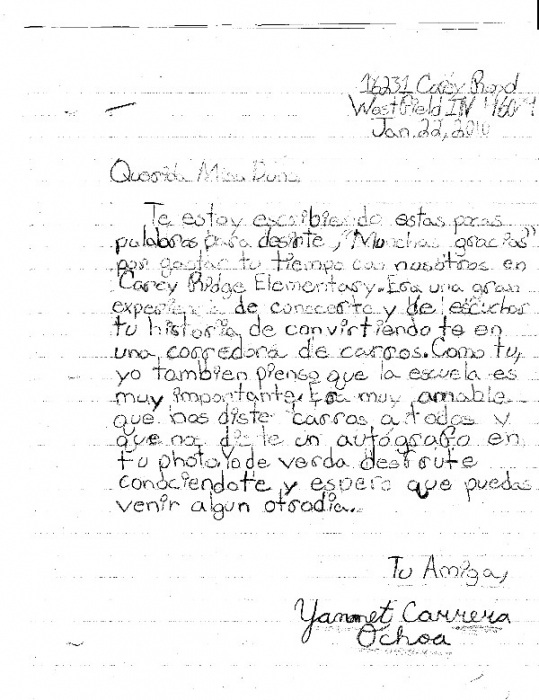 16231 Carey Road
Westfield IN
Jan. 22, 2010
Querida Miss
Te estoy escribiendo estas pocas
palabras para desirte, "Muchas gracias"
por gastar tu tiempo con nosotros en
Carey Ridge Elementary. Era una gran
experiencia de conocerte y de escuchar
tu historia de convirtiendo te en
una corredora de carros. Como tu,
yo tambien pienso que la escuela es
muy importante. Era muy amable
que nos diste carros a todos y
que nos diste un autógrafo en
tu photo. Yo de verda desfrute
conociendote y espero que puedas
venir algun otro dia.
Tu Amiga,
Yannet Carrera
Ochoa